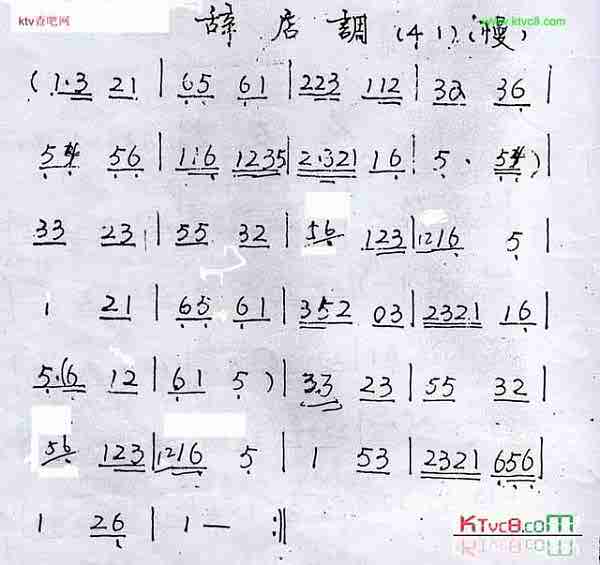 ktv查吧网
www.ktvc8.com
辞店調 (41) (慢)
(1·3 21 | 65 61 | 223 112 | 32 36 |
56 | 1·6 1235 | 2·321 16 | 5·
33 23 | 55 32 | 56 123 | 1216 5 |
1 21 | 65 61 | 352 03 | 2321 16 |
5·(6 12 | 61 5 ) | 3·3 23 | 55 32 |
56 123 | 1216 5 | 1 53 | 2321 656 |
1 26 | 1 — :‖
KTvc8.com